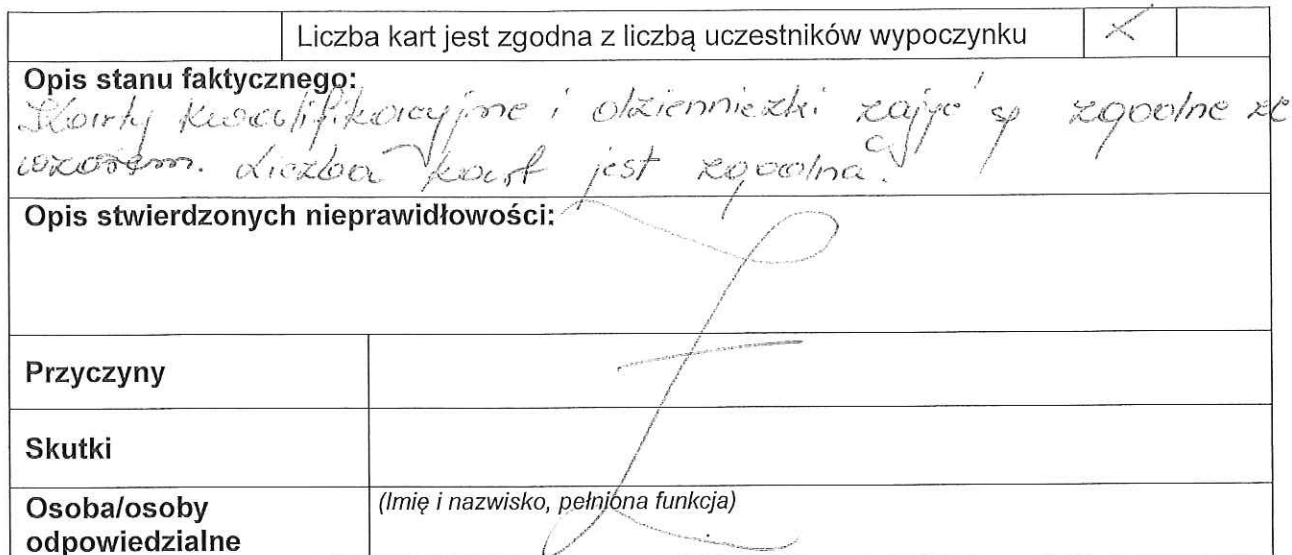 Liczba kart jest zgodna z liczbą uczestników wypoczynku X
Opis stanu faktycznego:
Karty kwalifikacyjne i dzienniczki zajęć są zgodne ze
wzorem. Liczba kart jest zgodna.
Opis stwierdzonych nieprawidłowości:
Przyczyny
Skutki
Osoba/osoby
odpowiedzialne
(Imię i nazwisko, pełniona funkcja)